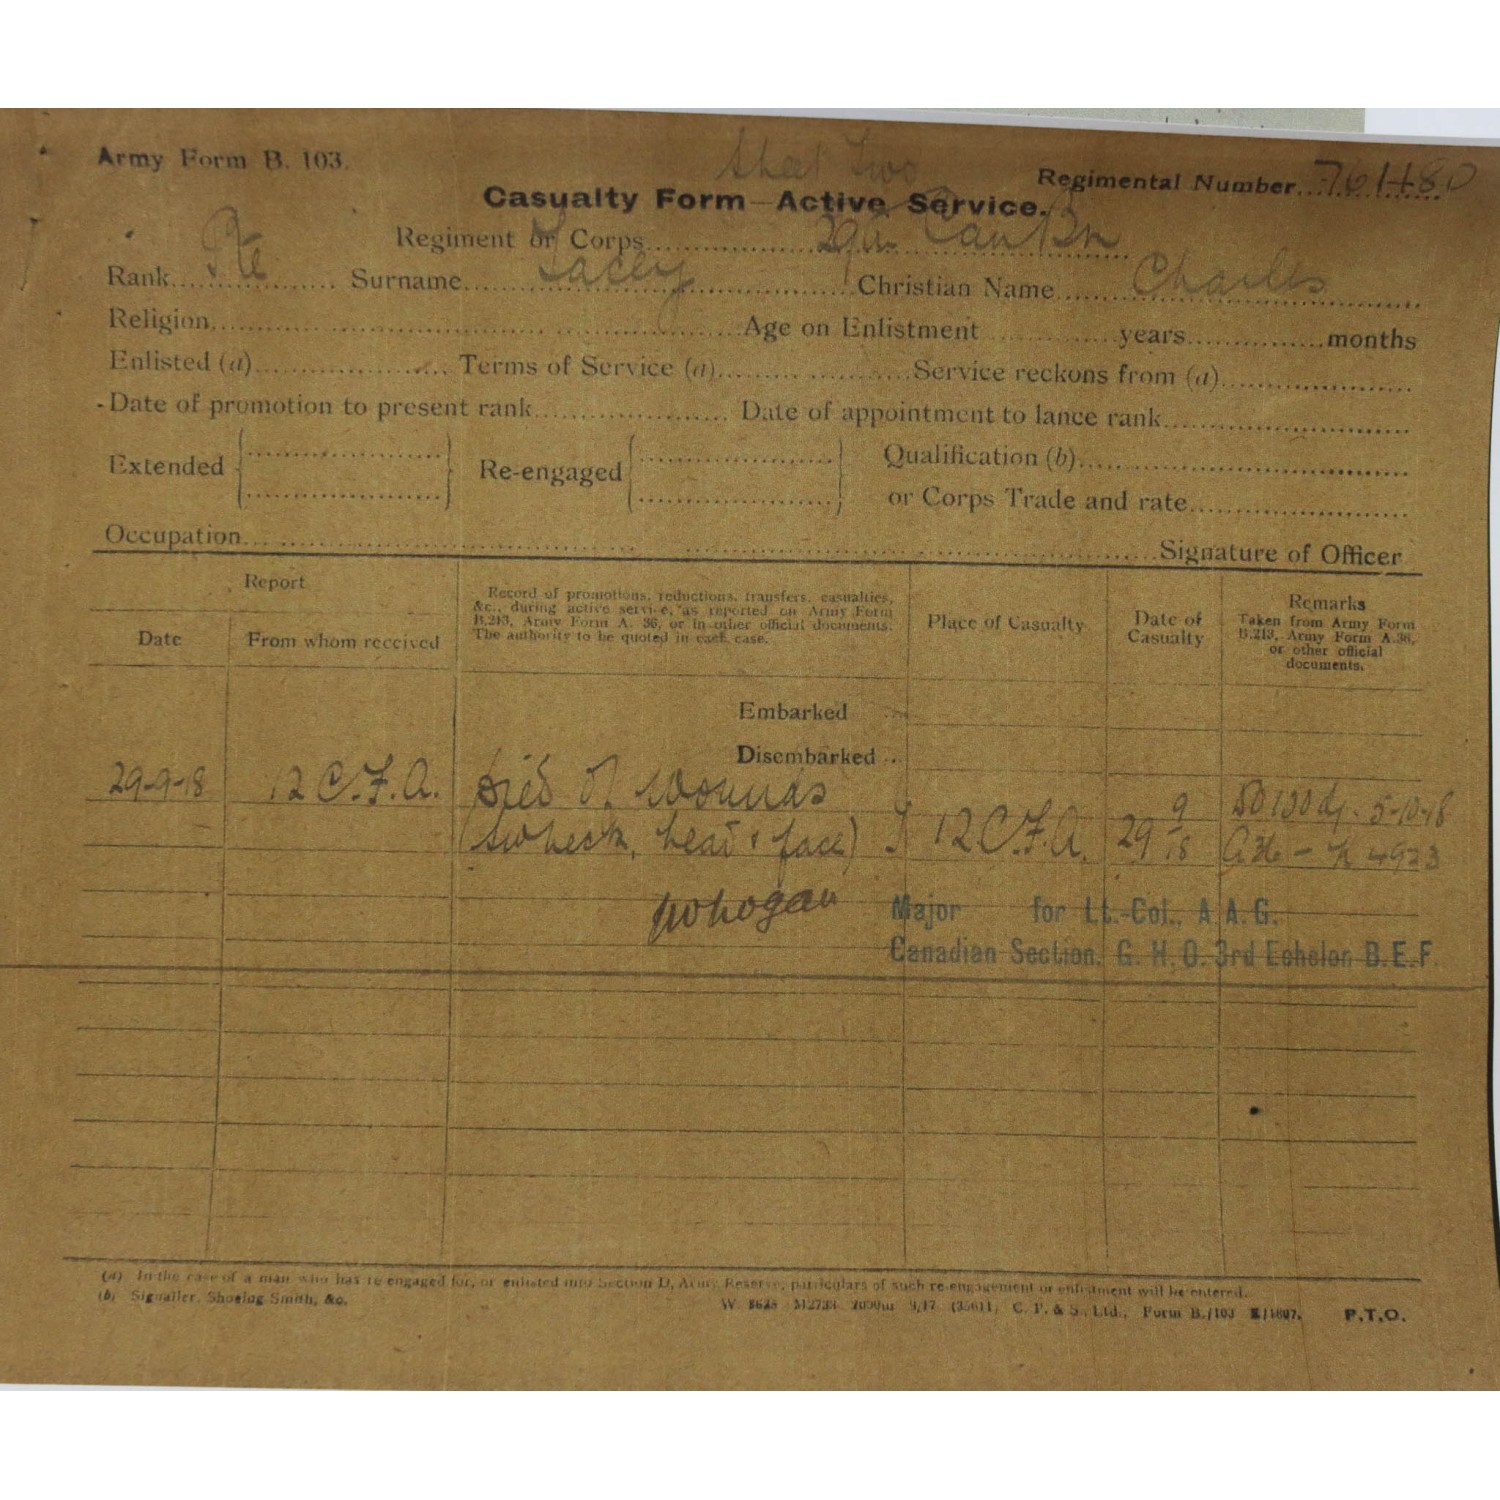 Sheet Two
Army Form B. 103.
Casualty Form—Active Service.
Regimental Number 761480
Regiment or Corps 29th Can Bn
Rank Pte Surname Lacey Christian Name Charles
Religion Age on Enlistment years months
Enlisted (a) Terms of Service (a) Service reckons from (a)
Date of promotion to present rank Date of appointment to lance rank
Extended Re-engaged Qualification (b)
or Corps Trade and rate
Occupation Signature of Officer
Report
Date From whom received
Record of promotions, reductions, transfers, casualties,
&c., during active service, as reported on Army Form
B.213, Army Form A. 36, or in other official documents.
The authority to be quoted in each case.
Place of Casualty
Date of
Casualty
Remarks
Taken from Army Form
B.213, Army Form A.36,
or other official
documents.
Embarked
Disembarked
29-9-18 12 C.F.A. Died of Wounds
(SW neck, head & face) 12 C.F.A. 29 9/18 5-10-18
A36 – 4923
Major for Lt.-Col., A.A.G.
Canadian Section, G. H. Q. 3rd Echelon B.E.F.
(a) In the case of a man who has re-engaged for, or enlisted into Section D, Army Reserve, particulars of such re-engagement or enlistment will be entered.
(b) Signaller, Shoeing Smith, &c.
9/17 C. P. & S., Ltd., Form B./103 E/1807. P.T.O.